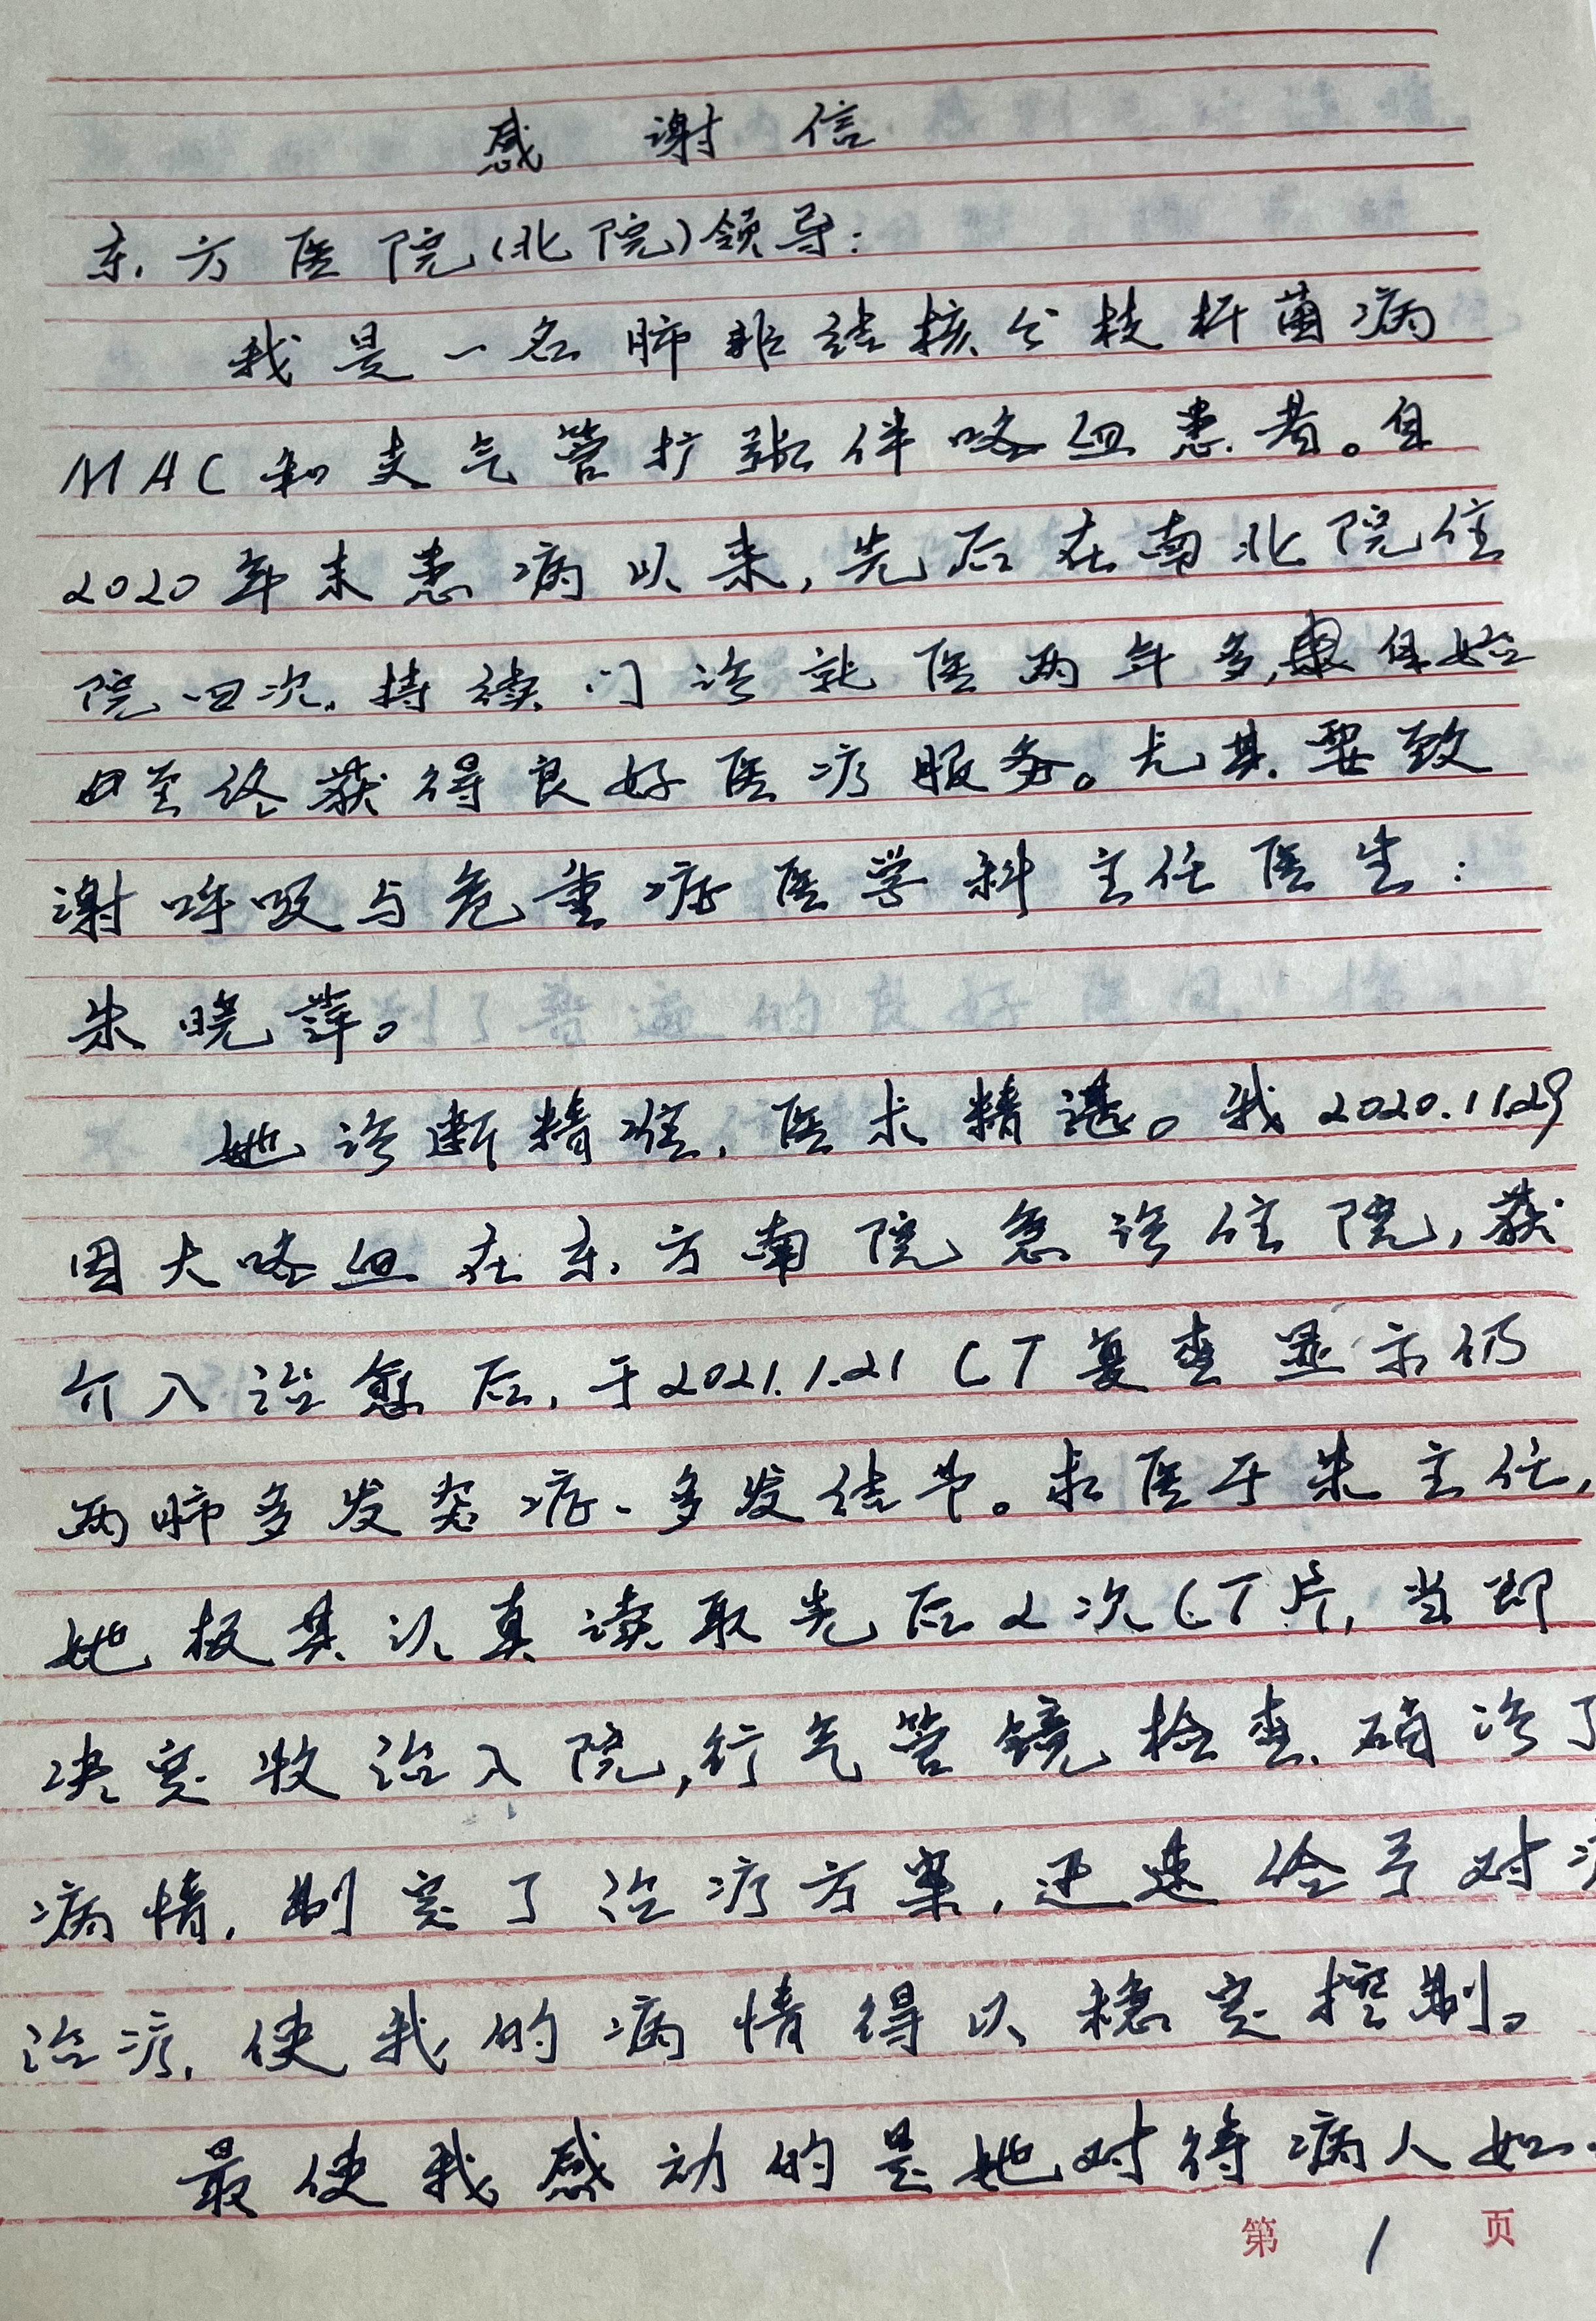 感谢信
东方医院(北院)领导:
我是一名肺非结核分枝杆菌病
MAC和支气管扩张伴咯血患者。自
2020年末患病以来,先后在南北院住
院四次,持续门诊就医两年多,自始
至终获得良好医疗服务。尤其要致
谢呼吸与危重症医学科主任医生:
朱晓萍。
她诊断精准,医术精湛。我2020.11.29
因大咯血在东方南院急诊住院,获
介入治愈后,于2021.1.21 CT复查显示仍
两肺多发炎症、多发结节。求医于朱主任,
她极其认真读取先后2次CT片,当即
决定收治入院,行气管镜检查,确诊了
病情,制定了治疗方案,迅速给予对
治疗,使我的病情得以稳定控制。
最使我感动的是她对待病人如
第 1 页